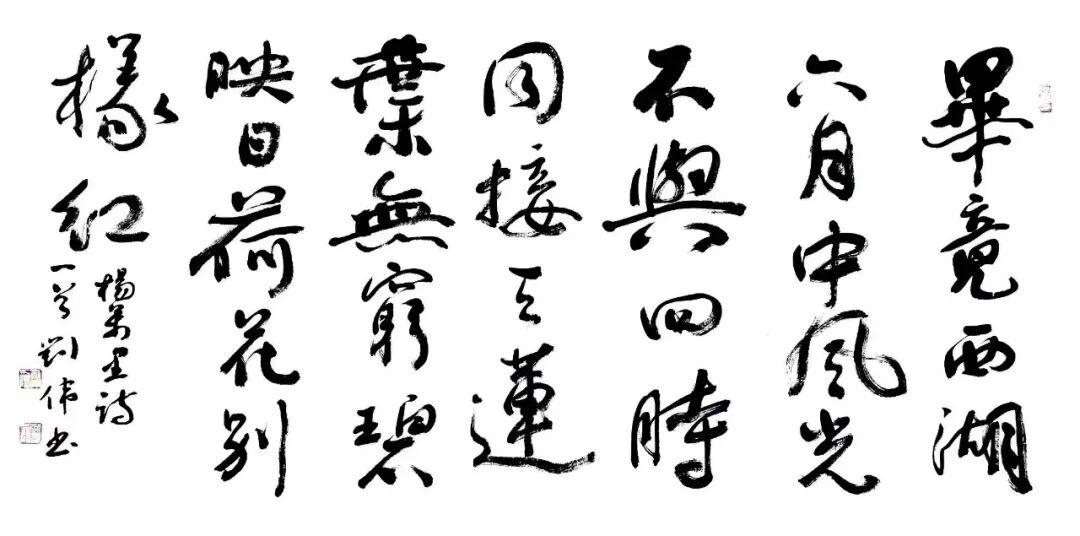 畢竟西湖
六月中風光
不與四時
同接天蓮
葉無窮碧
映日荷花别
樣紅
楊萬里詩
劉偉书